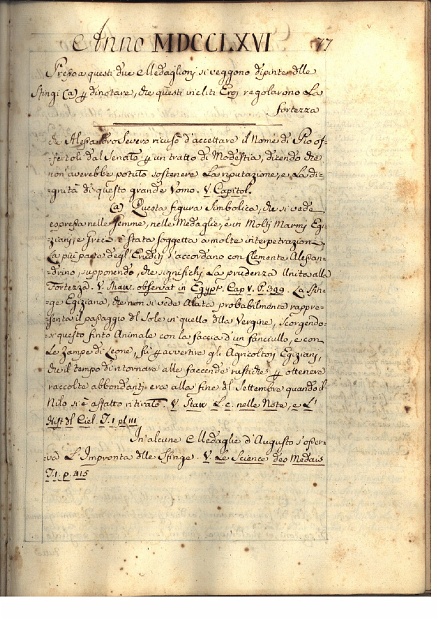 Anno MDCCLXVI 77
Presso a questi due Medaglioni si veggono dipinte delle
Sfingi (a) p dinotare, che questi incliti Eroi regolarono La
fortezza
che Alessandro Severo ricusò d'accettare il Nome di Pio of-
fertoli dal Senato p un tratto di Modestia, dicendo che
non averebbe potuto sostenere La riputazione, e La di-
gnità di questo grande Uomo. V. Capitol.
(a) Questa figura Simbolica, che si vede
espressa nelle Gemme, nelle Medaglie, e in Molti Marmi Egi-
ziani, e Greci è stata soggetta a molte interpetrazioni
La più parte degl'Eruditi s'accordano con Clemente Alessan-
drino supponendo, che significhi La prudenza Unita alla
Fortezza. V. Shaw. observat in Egypt. Cap V. p. 399. La Sfin-
ge Egiziana, che non si vede Alata probabilmente rappre-
senta il passaggio del Sole in quello della Vergine, scorgendo-
si questo finto Animale con la faccia d'un fanciullo, e con
Le Zampe di Leone, p avvertire gli Agricoltori Egiziani,
che il tempo di ritornare alle faccende rustiche p ottenere
raccolte abbondanti era alla fine del Settembre quando il
Nilo si è affatto ritirato. V. Shaw L. c. nelle Note, e L'
Hist del Ciel. T. 1 pl III
In alcune Medaglie d'Augusto s'osser-
va L'Impronta delle Sfinge. V. Le Science des Medais
T. 1. p. 415